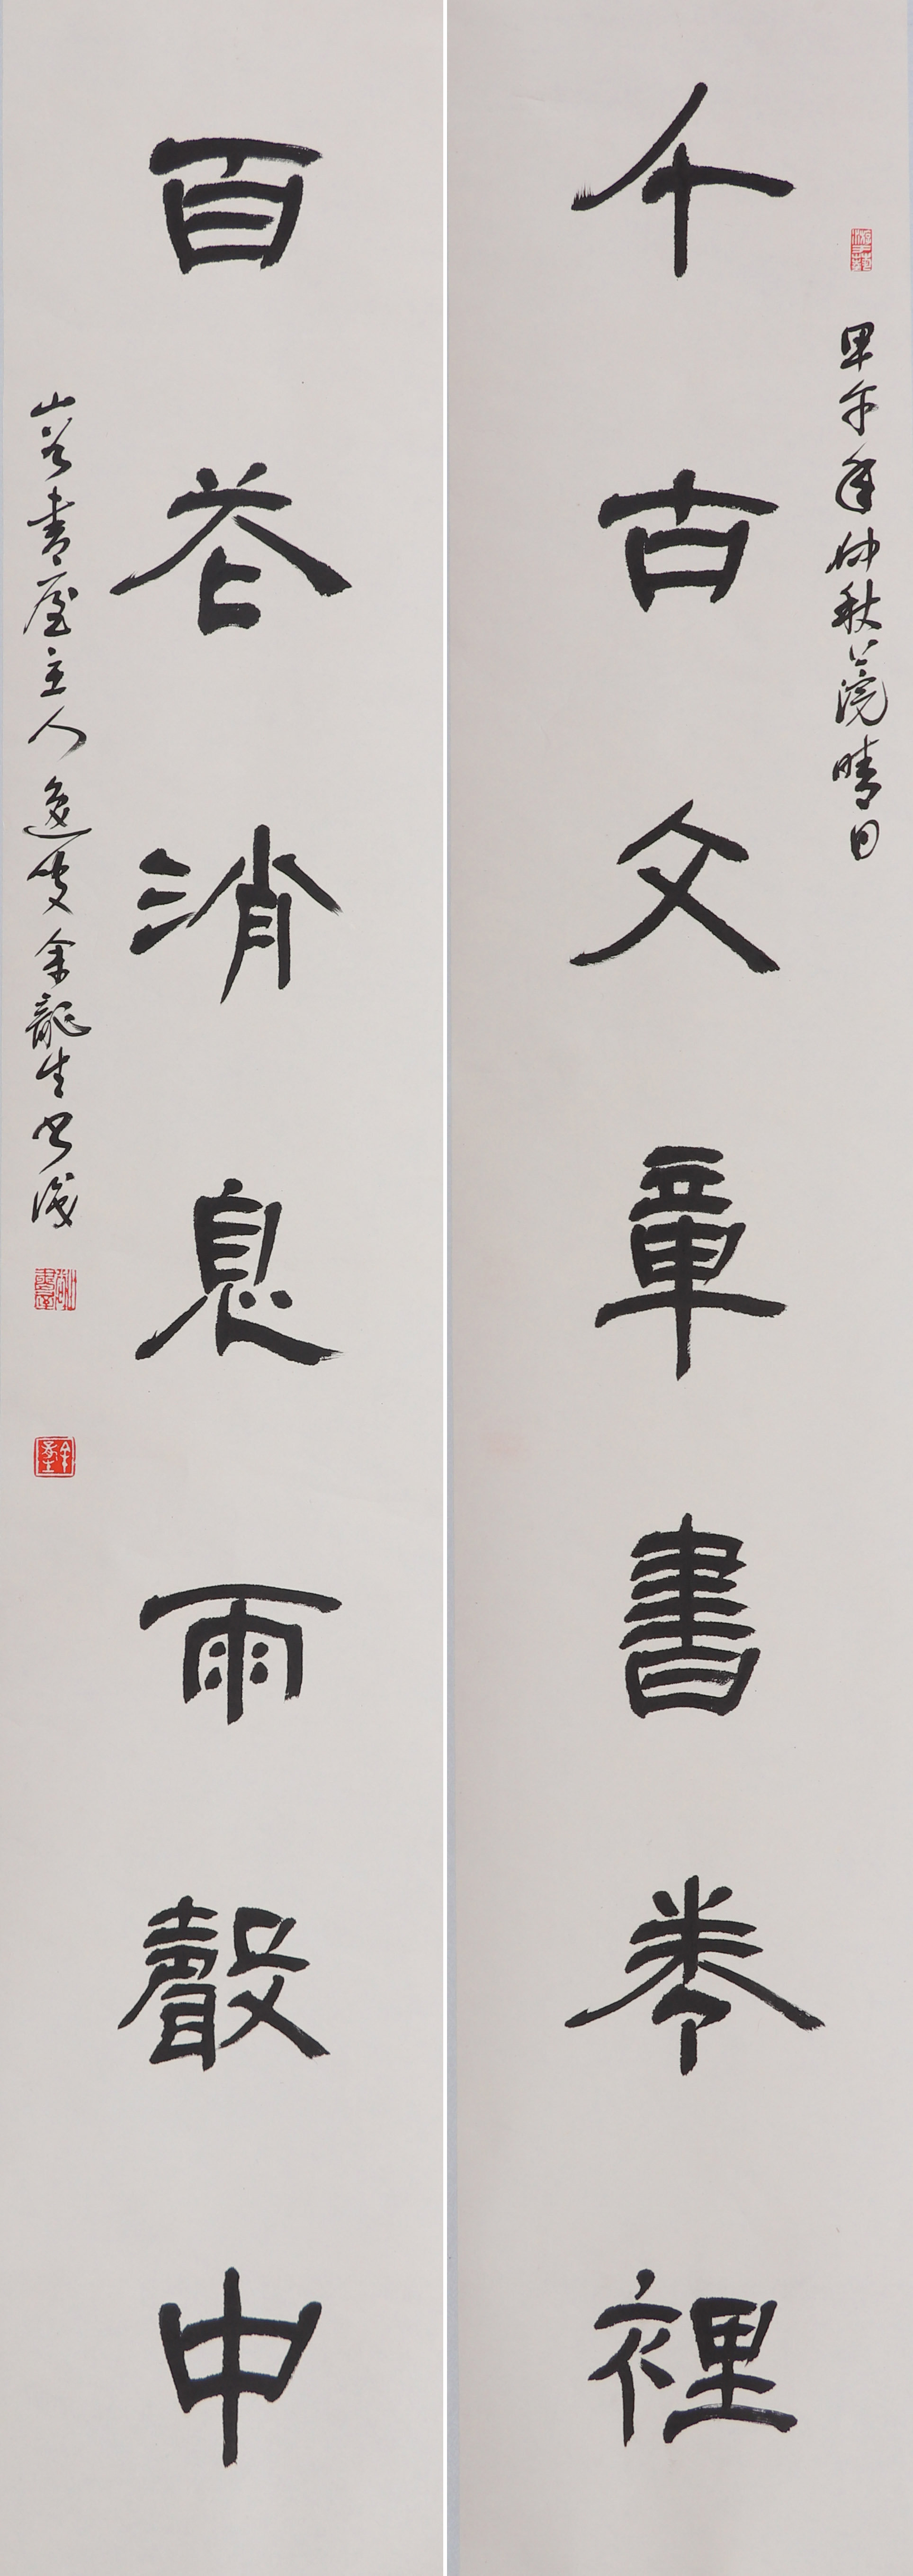 甲午年仲秋公院晴日
千古文章書卷裡
百花消息雨聲中
山谷書屋主人逸叟余龍生書識